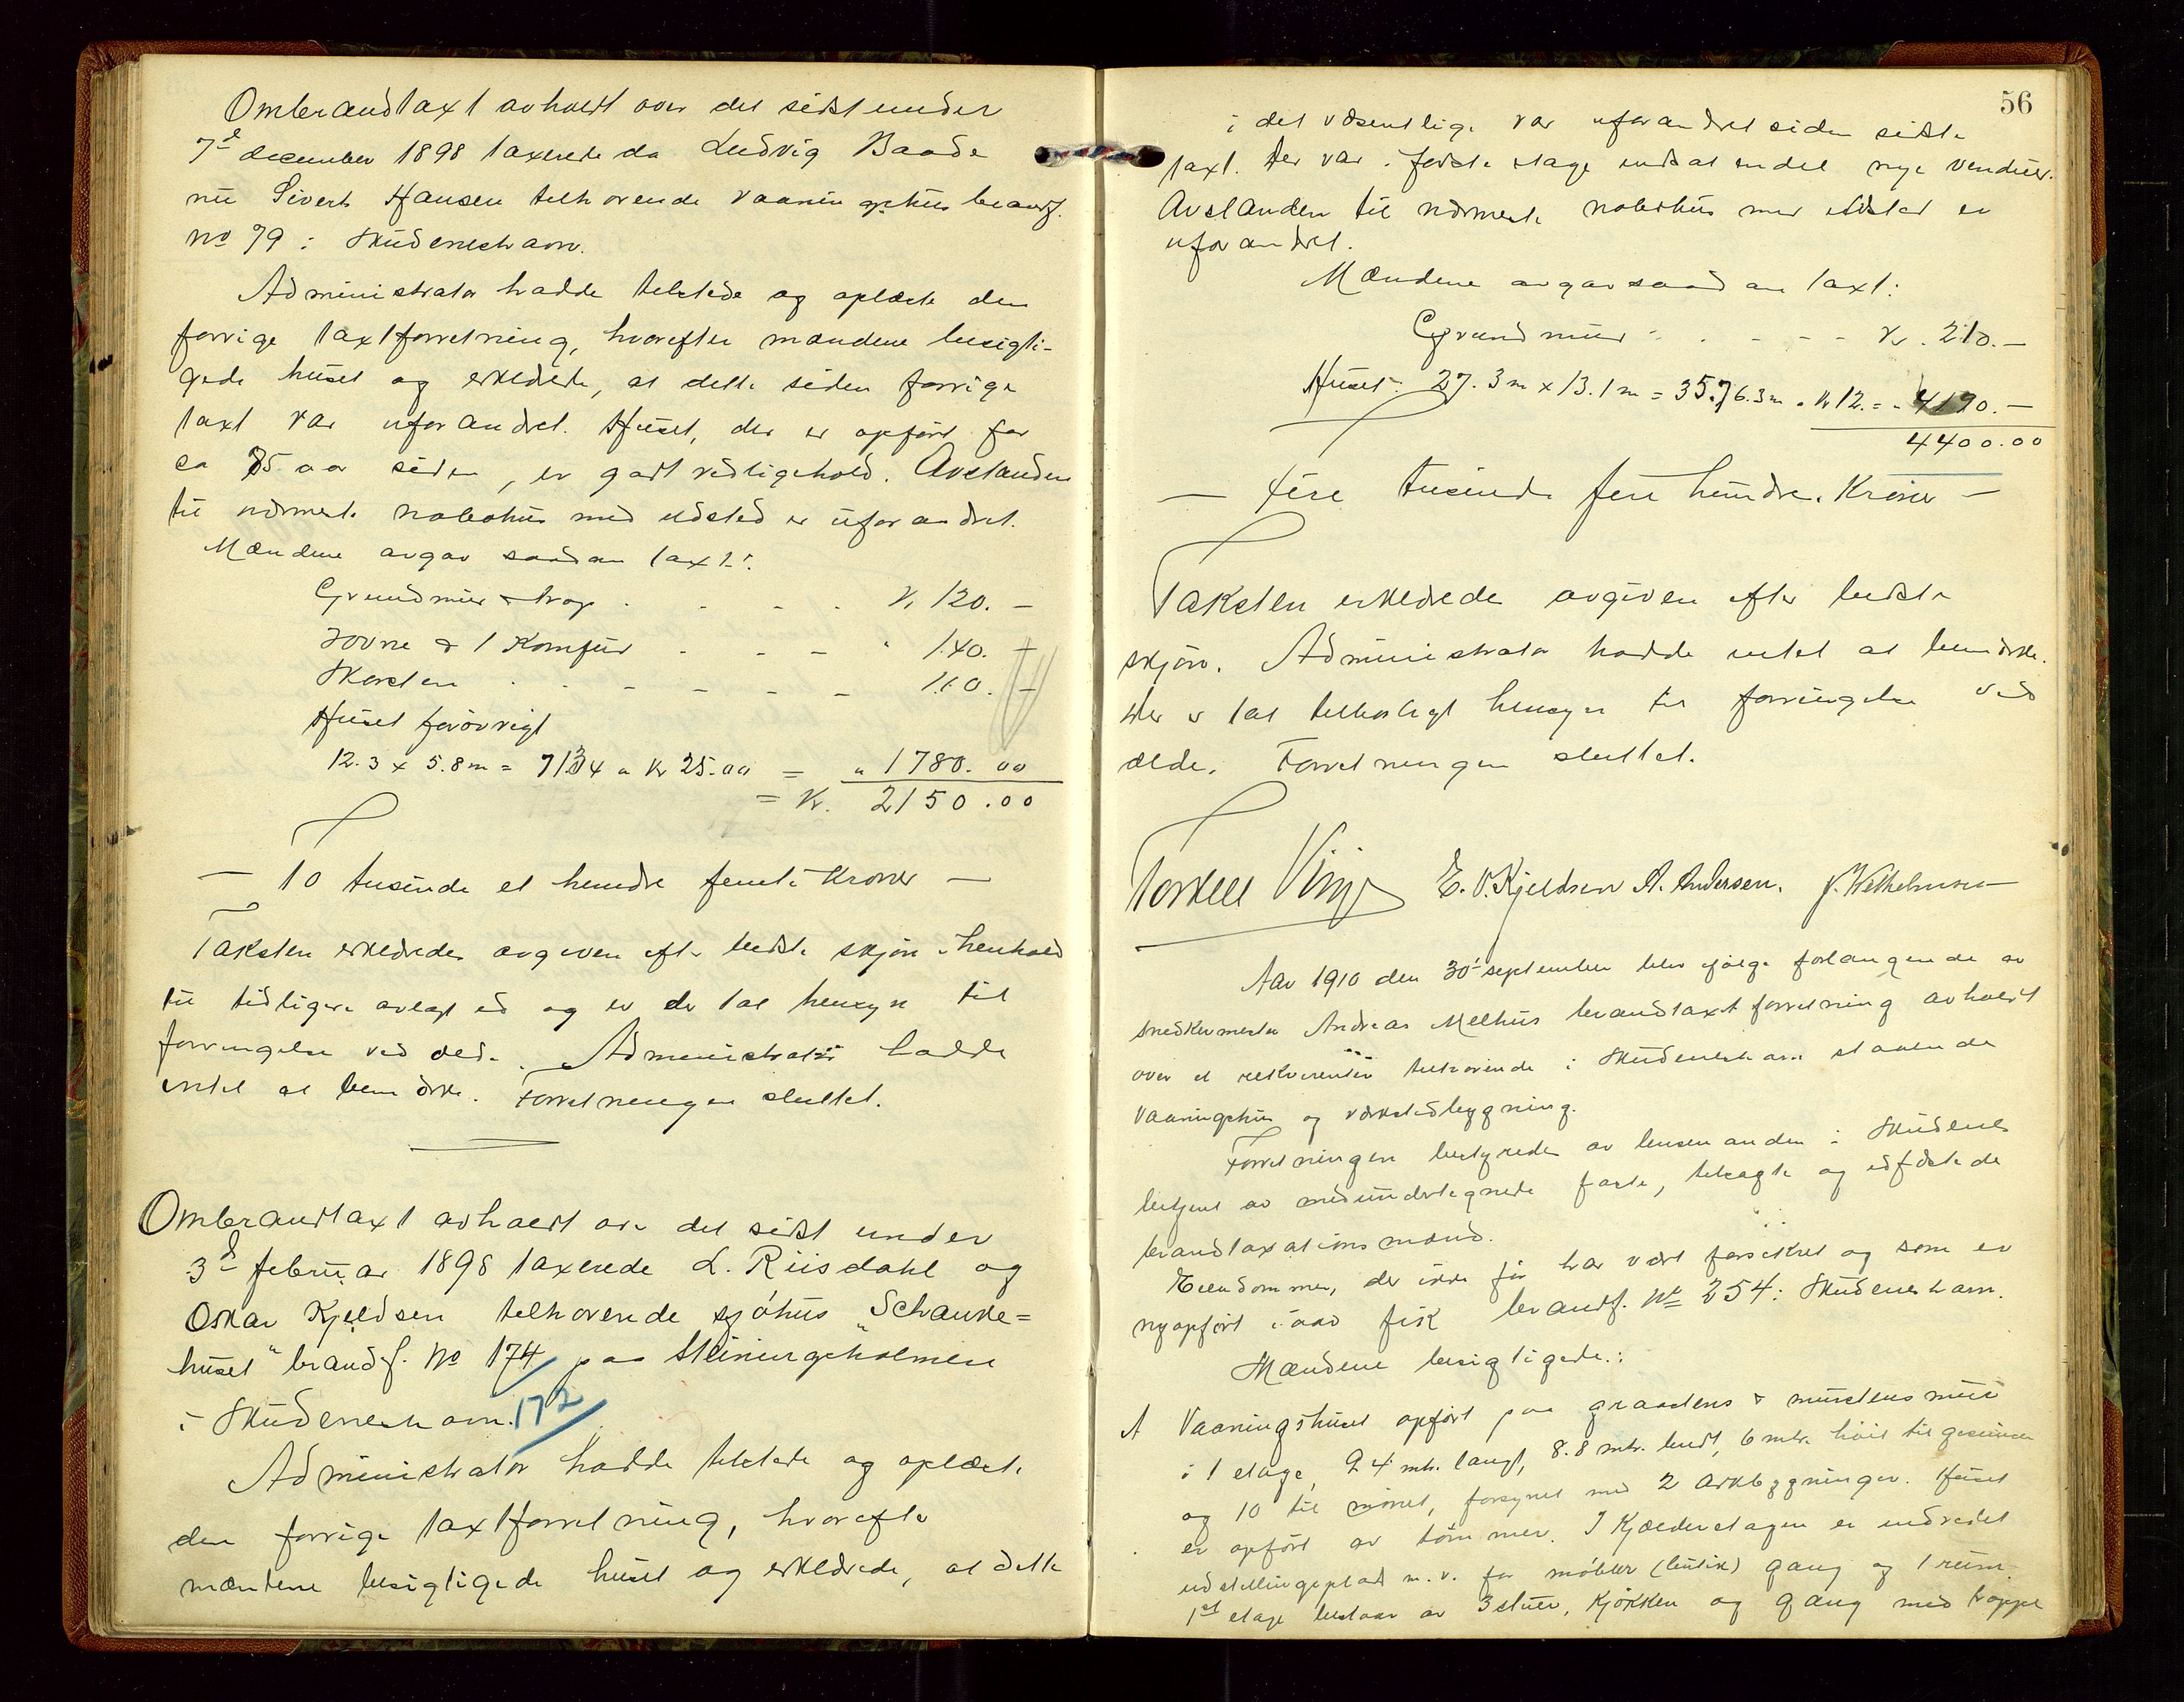 Ombrandtaxt avholdt over det sidst under
7de december 1898 taxerede da Ludvig Baade
nu Sivert Hansen tilhørende vaaningshus brandf.
no 79 i Skudeneshavn.
Administrator hadde tilstede og oplæste den
forrige taxtforretning, hvorefter mændene besigti-
gede huset og erklærede, at dette siden forrige
taxt var uforandret. Huset, der er opført for
ca 75 aar siden, er godt vedligehold. Avstanden
til nærmeste nabohus med ildsted er uforandret.
Mændene avgav saadan taxt:
Grundmur & trap . - - . Kr 120. -
Ovne & 1 Komfur - - - " 140. -
Skorsten . . - - - - 110. -
Huset forøvrigt
12.3 x 5.8 m = 7134 a Kr 25.00 = " 1780.00
= Kr. 2150.00
— To tusinde et hundre femti Kroner —
Taksten erklæredes avgiven efter bedste skjøn i henhold
til tidligere avlagt ed og er der tat hensyn til
forringelse ved ælde. Administrator hadde
intet at bemærke. Forretningen sluttet.
Ombrandtaxt avholdt over det sidst under
3de februar 1898 taxerede L. Riisdahl og
Oskar Kjeldsen tilhørende sjøhus "Schanke=
huset" brandf. No 174 paa Steiningsholmen
i Skudeneshavn. 172
Administrator hadde tilstede og oplæste
den forrige taxtforretning, hvorefter
mændene besigtigede huset og erklærede, at dette
56
i det væsentlige var uforandret siden sidste
taxt. Der var i første etage indsat endel nye vinduer.
Avstanden til nærmeste nabohus med ildsted er
uforandret.
Mændene avgav saadan taxt:
Grundmur - . - - - Kr. 210. —
Huset: 27.3 m x 13.1 m = 357,6.3 m a Kr 12. = " 4190. —
4400.00
— Fire tusinde fire hundre Kroner —
Taksten erklæredes avgiven efter bedste
skjøn. Administrator hadde intet at bemærke.
Der er tat tilbørligt hensyn til forringelse ved
ælde. Forretningen sluttet.
Torkell Vinje E. O. Kjeldsen A. Andersen. J. Wilhelmsen
Aar 1910 den 30' september blev ifølge forlangende av
snedkermester Andreas Melhus brandtaxtforretning avholdt
over et rekvirenten tilhørende i Skudeneshavn staaende
vaaningshus og værkstedbygning.
Forretningen bestyredes av lensmanden i Skudenes
betjent av medundertegnede faste, tilsagte og edfæstede
brandtaxationsmænd.
Eiendommen, der ikke før har vært forsikret og som er
nyopført i aar fik brandf. No 254 i Skudeneshavn.
Mændene besigtigede:
A Vaaningshuset opført paa graastens & murstens mur
i 1 etage, 9.4 mtr. langt, 8.8 mtr. bredt, 6 mtr. høit til gesimsen
og 10 til mønet, forsynet med 2 arkbygninger. Huset
er opført av tømmer. I Kjælderetagen er indredet
udstillingsplads m. v. for møbler (butik) gang og 1 rum.
1st etage bestaar av 3 stuer, kjøkken og gang med trappe